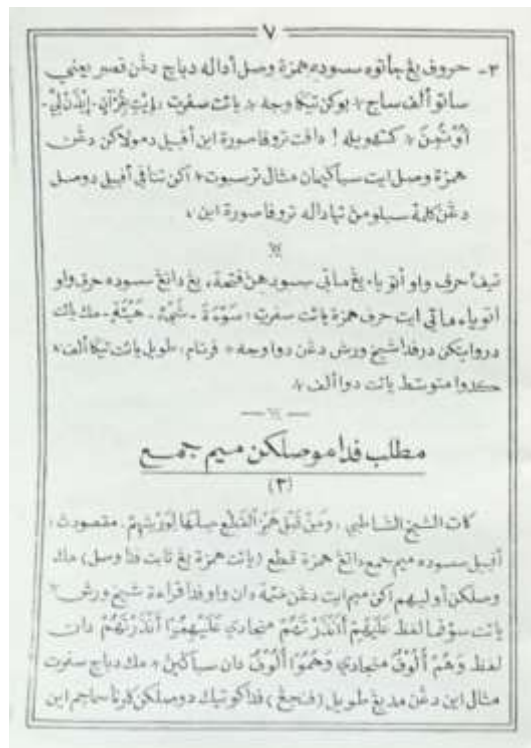 ٧
٣- حروف يڠ جاتوه سسوده همزة وصل أداله دباچ دڠن قصر يعني
ساتو ألف ساج، بوكن تيݢ وجه، يائت سفرت: إِيْتِ بِقُرْآنٍ - إِيْذَنْ لِي -
أُوْتُمِنَ، كتهويله! دافت تروفا صورة اين أفبيل دمولاكن دڠن
همزة وصل ايت سباݢيمان مثال ترسبوت، اكن تتافي أفبيل دوصل
دڠن كلمة سبلومڽ تياداله تروفا صورة اين،
تيف٢ حرف واو أتو ياء يڠ ماتي سسوده فتحة، يڠ داتڠ سسوده حرف واو
اتو ياء ماتي ايت حرف همزة يائت سفرت: سَوْءَةَ - شَيْءٍ - هَيْئَةِ - مك
دروايتكن درفد شيخ ورش دڠن دوا وجه، فرتام: طويل يائت تيݢ ألف،
كدوا متوسط يائت دوا ألف،
مطلب فدا موصلكن ميم جمع
(٣)
كات الشيخ الشاطبي: وَمِنْ قَبْلِ هَمْزِ الْقَطْعِ صِلْهَا لِوَرْشِهِمْ. مقصودڽ:
أفبيل سسوده ميم جمع داتڠ همزة قطع (يائت همزة يڠ ثابت فدا وصل) مك
وصلكن أوليهم اكن ميم ايت دڠن ضمة دان واو فدا قراءة شيخ ورش
يائت سوڤما لفظ عَلَيْهِمْ أَأَنْذَرْتَهُمْ منجادي عَلَيْهِمُوْا أَنْذَرْتَهُمْ دان
لفظ وَهُمْ أُلُوْفٌ منجادي وَهُمُوْا أُلُوْفٌ دان سباݢيڽ، مك دباچ سفرت
مثال اين دڠن مد يڠ طويل (ڤنجڠ) فدا كوتيك دوصلكن كارنا سماچم اين